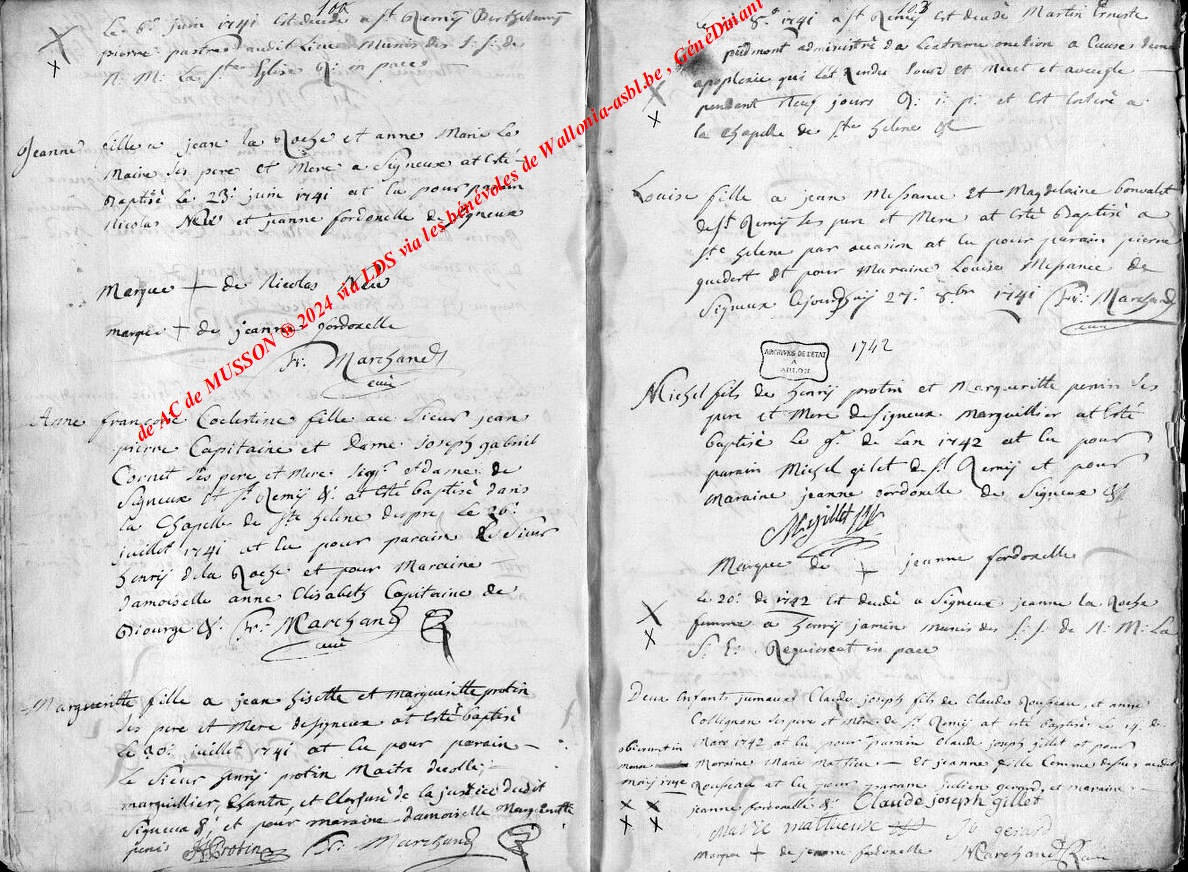 102
Le 6e juin 1741 Est decedé a st Remij Berthelemij
pierre partre dudit Lieu Munis des S. S. de
N. M. La ste Eglise R. en pace
Jeanne fille a jean la Roche et anne Marie Le
Maire ses pere et Mere a Signeux at Esté
Baptisé Le 23e juin 1741 at Eu pour parain
Nicolas et jeanne fordoxelle de Signeux
Marque + de Nicolas
marque + de jeanne fordoxelle
Fr. Marchand
curé
Anne françoise Coelestine fille au Sieur jean
pierre Capitaine et Dame Joseph gabriel
Cornet ses pere et Mere Seigr et dame de
Signeux et St Remij &. at Esté baptisé dans
La Chapelle de Ste helene despre Le 26e
juillet 1741 at Eu pour parain Le Sieur
henrij dela Roche et pour Maraine
damoiselle anne Elisabeth Capitaine de
Biourge &. Fr. Marchand
curé
Margueritte fille a jean Gisette et margueritte protin
ses pere et Mere de Signeux at Esté baptisé
Le 30e juillet 1741 at Eu pour parain
Le Sieur henrij protin Maitre decolle
marguillier, Chantre, et Clerjuré de la justice dudit
Signeux & et pour maraine damoiselle Margueritte
penin Protin Fr. Marchand
103
1741 a st Remij Est decedé Martin Erneste
piedmont administré da Lextreme onction a Cause dune
apoplexie qui Lat Rendu Sourd et Muet et aveugle
pendant Neuf jours R. i. p. et Est Enterré a
la Chapelle de Ste helene &
Louise fille a jean Messance et Magdelaine bonvalet
de St Remij ses pere et Mere at Esté Baptisé a
Ste helene par occasion at Eu pour parain pierre
quedert et pour Maraine Louise Messance de
Signeux Cejourdhuij 27e 8bre 1741 Fr. Marchand
curé
ARCHIVES DE L'ETAT
A
ARLON
1742
Michel fils de henrij protin et Margueritte penin ses
pere et Mere de Signeux marguillier at Esté
baptisé Le 9e de Lan 1742 at Eu pour
parain Michel gilet de St Remij et pour
maraine jeanne fordoxelle de Signeux &
M gillet
Marque de + jeanne fordoxelle
Le 20e de 1742 Est decedé a Signeux jeanne la Roche
femme a henrij jamin munis des S. S. de N. M. La
S. E. Requiescat in pace
Deux Enfants jumeaux Claude joseph fils de Claude Rouseau, et anne
Collignon ses pere et Mere de St Remij at esté baptisé Le 14 de
Mars 1742 at Eu pour parain Claude joseph gillet et pour
Maraine Marie mathieu — Et jeanne fille Comme dessus audit
Rouseau at Eu pour parain Julien gerard, et maraine
jeanne fordoxelle &. Claude joseph gillet
obierunt in
Marie mathieuse J gerard
Marque + de jeanne fordoxelle Marchand Curé
de AC de MUSSON ® 2024 via LDS via les bénévoles de Wallonia-asbl.be , GénéDinant